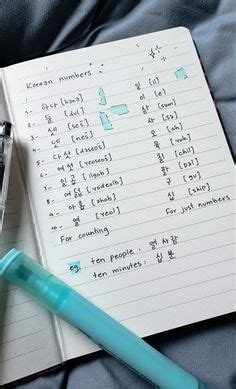 Korean numbers :
1- 하나 [hana] 일 [il]
2- 둘 [dul] 이 [e]
3- 셋 [set] 삼 [sam]
4- 넷 [net] 사 [sa]
5- 다섯 [daseos] 오 [oh]
6- 여섯 [yeoseos] 육
7- 일곱 [ilgob] 칠 [chil]
8- 여덟 [yodeolb] 팔 [pal]
9- 아홉 [ahob] 구 [gu]
10- 열 [yeol] 십 [ship]
For counting For just numbers
eg. ten people : 열 사람
ten minutes : 십 분